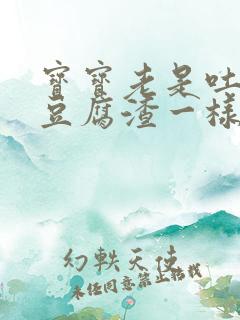 寶寶老是吐
豆腐渣一樣
幻軼天使
未经同意禁止转载